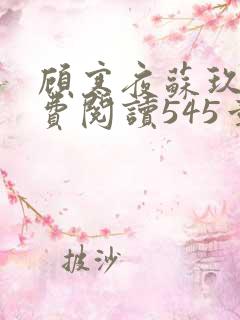 顧寒夜蘇玖
費閱讀545
披沙